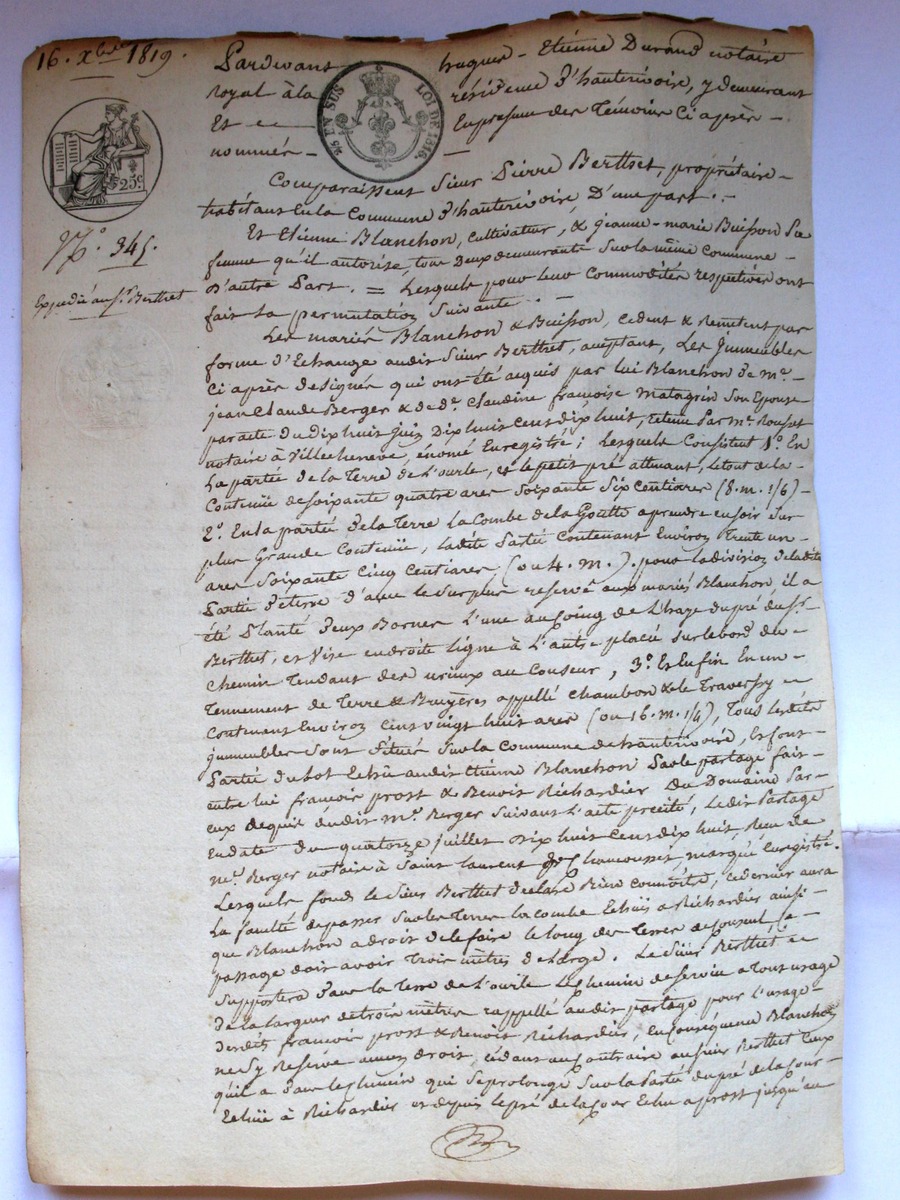 16. Xbre 1819.
Pardevant hugues - Etiénne Durand notaire
royal à la résidence d'hauterivoire, y demeurant
Et en présence des Témoins Ci après -
nommés -
2/5 EN SUS LOI DE 1816.
25c
No. 345.
Expedié au sr. Berthet
Comparaissent Sieur Pierre Berthet, propriétaire -
habitant En la Commune d'hauterivoire D'une part. -
Et Etiénne Blanchon, cultivateur, & jeanne-marie Buisson Sa
femme qu'il autorise, tous Deux demeurants Sur la même Commune -
D'autre Part. = Lesquels pour leur Commodités respectives ont
fait la permutation Suivante. -
Les mariés Blanchon & Buisson, cedent & Remettent par
forme d'Echange audit Sieur Berthet, aceptant, Les Jmmeubles
Ci après designés qui ont été acquis par lui Blanchon de mr. -
jean Claude Berger & de de. Claudine françoise Matagrin Son Epouse
par acte du dix huit juin Dix huit cent dix huit, retenu Par me. Rousset
notaire à Villecheneve, énoncé Enregistré; Lesquels Consistent 1o. En
La partie de la Terre de L'ourle, et le petit pré attenant, le tout de la -
Contenüe de Soixante quatre ares Soixante Six Centiares (8. m. 1/6) -
2o. En la partie de la Terre La Combe de la Goutte a prendre en soir Sur
plus Grande Contenüe, ladite Partie Contenant Environ Trente un -
ares Soixante Cinq Centiares (ou 4. m.). pour la division de la dite
Partie de terre d'avec le Surplus reservé aux mariés Blanchon, il a
été Planté deux Bornes L'une au Coing de L'haye du pré du sr. -
Berthet, et Vise en droite ligne à L'autre placée Sur le bord du -
Chemin Tendant des au Couseur, 3o. Et Enfin En un -
Tennement de Terre & Bruyères appellé Chambon & le Traversry -
Contenant Environ Cent vingt huit ares (ou 16. m. 1/4), Tous lesdits
jmmeubles Sont Situés Sur la Commune de hauterivoire, Et font -
Partie du Lot Echü audit Etiénne Blanchon Par le partage fait -
entre lui françois prost & Benoit Richardier Du Domaine Par -
eux acquit dudit mr. Berger Suivant L'acte precité, Ledit Partage
En date du quatorze juillet Dix huit Cent dix huit, Reçu De
me. Berger notaire à Saint laurent de Chamousset marqué Enregistré.
Lesquels fonds le Sieur Berthet declare Bien connoitre, ce dernier aura
La faculté de passer Sur les Terres la combe Echüe a Richardier ainsi -
que Blanchon a droit de le faire le long des Terres de Couseul Ce -
passage doit avoir Trois mètres de Large. Le Sieur Berthet -
Supportera Sur la Terre de L'ourle Le Chemin de Servin a Tout usage
de la Largeur de trois mètres rappellé audit partage pour L'usage -
desdits françois prost & Benoit Richardier, En Conséquence Blanchon
ne Sy Reserve aucun droit, cédant au Contraire au sieur Berthet Ceux
qu'il a Sur le Chemin qui Se prolonge Sur la Partie du pré de la Cour -
Echüe à Richardier et depuis le pré de la Cour Echu a prost jusqu'au